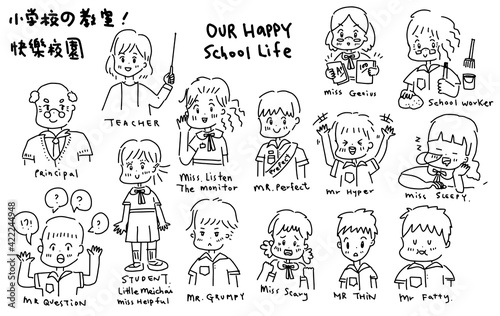 小学校の教室!
快樂校園
OUR HAPPY
School Life
TEACHER
Principal
Miss. Listen
The monitor
MR. Perfect
PREFECT
miss Genius
100
School worker
Mr Hyper
zzz
miss SLEEPY.
? ? ?
?!?!
MR QUESTION
STUDENT.
Little Meichai
miss Helpful
MR. GRUMPY
Miss Scary
MR THIN
Mr Fatty.
Adobe Stock
#422244948